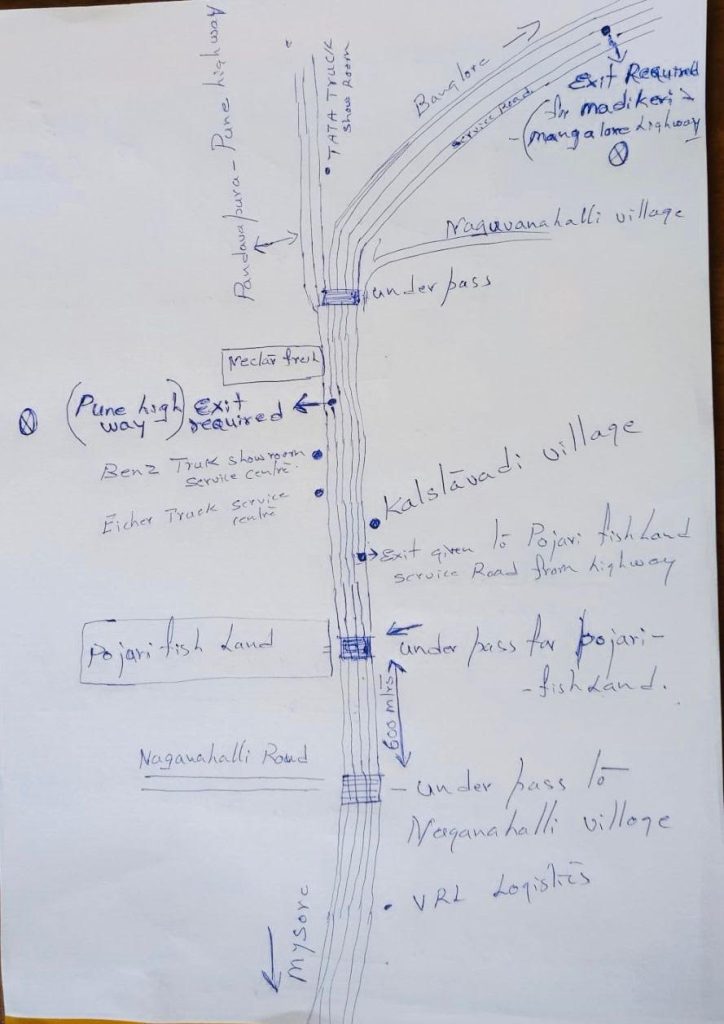 Pandavapura - Pune highway
TATA TRUCK
Show Room
Banglore
Service Road
Exit Required
for madikeri -
mangalore highway
Naguvanahalli village
under pass
Nectar fresh
(Pune high
way)
Exit
required
Benz Truk showroom
service centre.
Eicher Truck service
centre
Kalstavadi village
Exit given to Pojari fishLand
service Road from highway
Pojari fish Land
under pass for pojari-
-fishLand.
600 mtrs
Naganahalli Road
- under pass to
Naganahalli village
VRL Logistics
Mysore